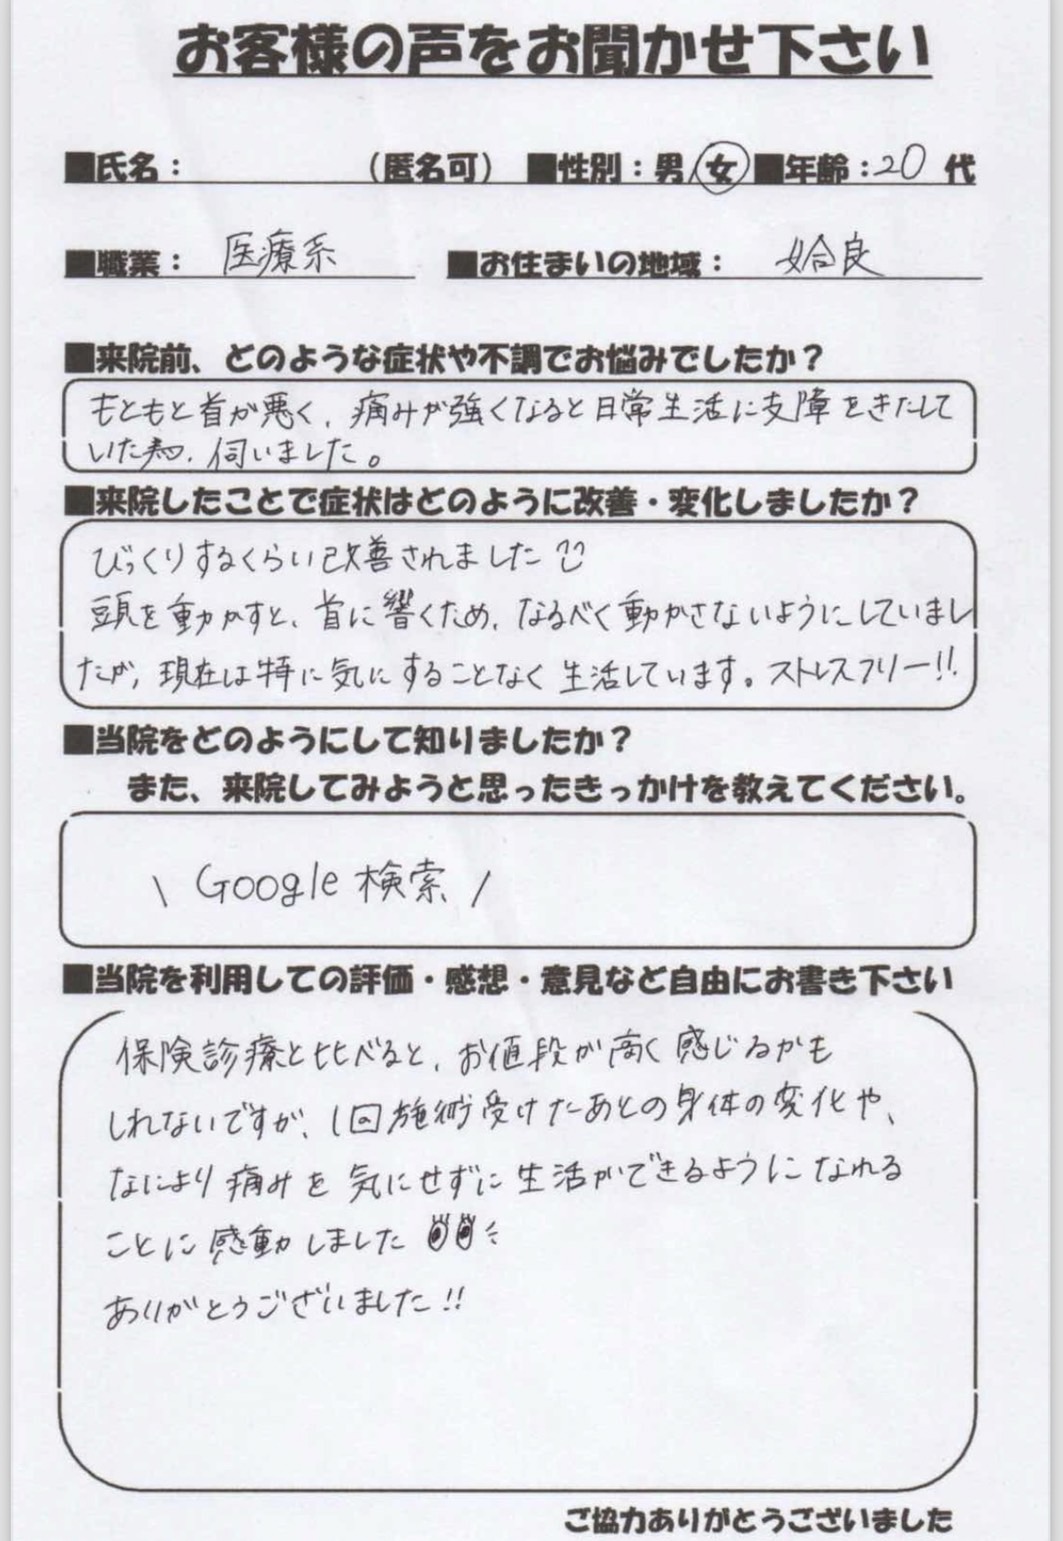 お客様の声をお聞かせ下さい
■氏名： （匿名可） ■性別：男/女 ■年齢：20 代
■職業： 医療系 ■お住まいの地域： 姶良
■来院前、どのような症状や不調でお悩みでしたか？
もともと首が悪く、痛みが強くなると日常生活に支障をきたして
いた為、伺いました。
■来院したことで症状はどのように改善・変化しましたか？
びっくりするくらい改善されました
頭を動かすと、首に響くため、なるべく動かさないようにしていまし
たが、現在は特に気にすることなく生活しています。ストレスフリー!!
■当院をどのようにして知りましたか？
また、来院してみようと思ったきっかけを教えてください。
\ Google 検索 /
■当院を利用しての評価・感想・意見など自由にお書き下さい
保険診療と比べると、お値段が高く感じるかも
しれないですが、1回施術受けたあとの身体の変化や、
なにより痛みを気にせずに生活ができるようになれる
ことに感動しました
ありがとうございました!!
ご協力ありがとうございました